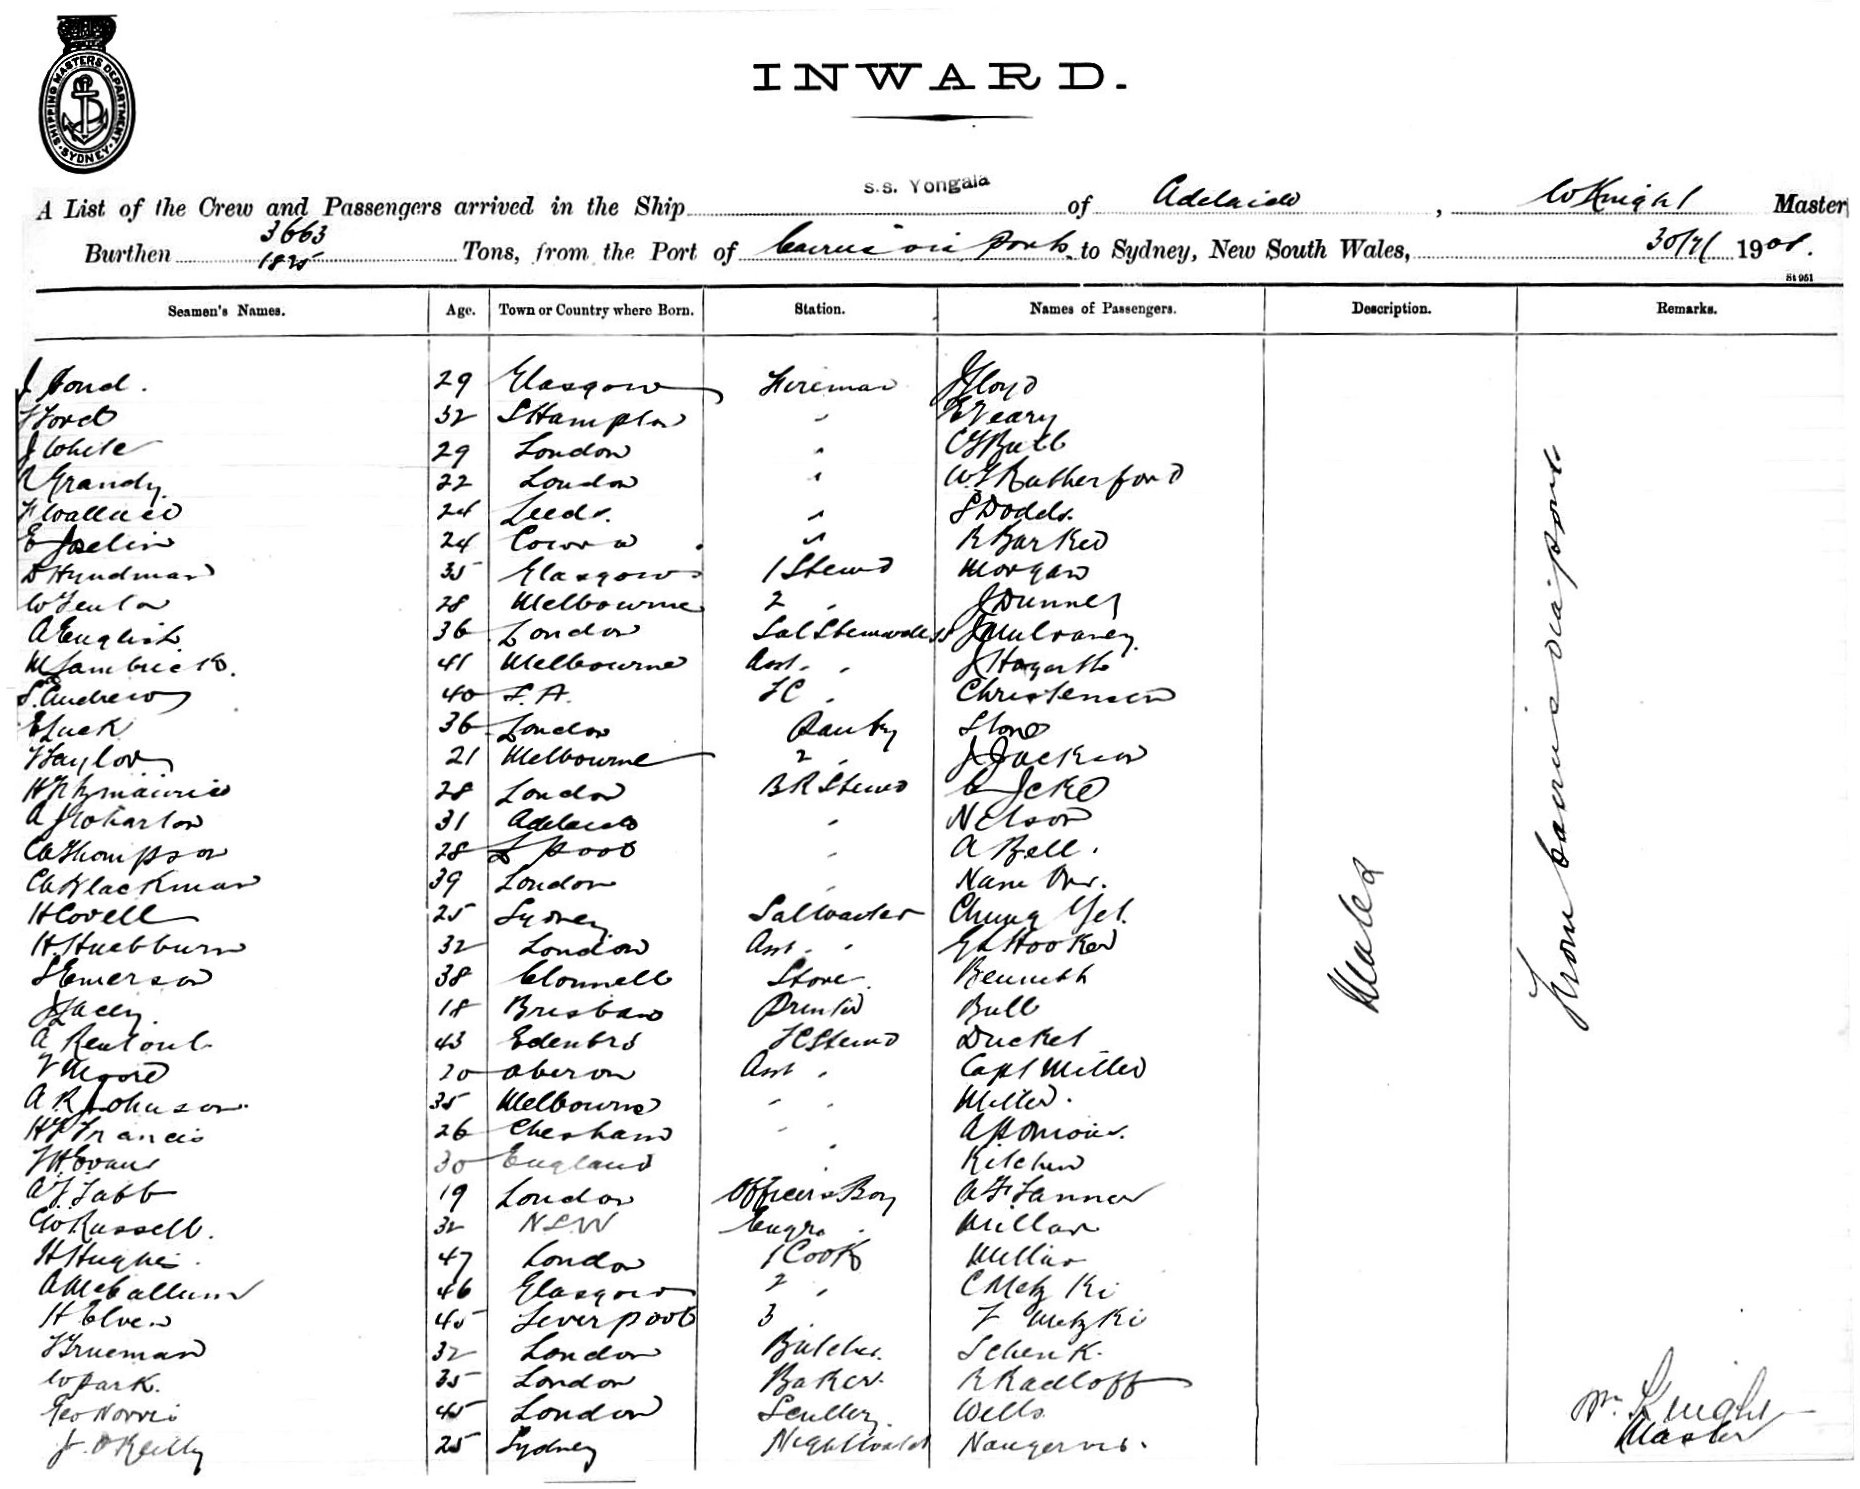 SHIPPING MASTERS DEPARTMENT
SYDNEY
INWARD.
A List of the Crew and Passengers arrived in the Ship s.s. Yongala of Adelaide, W Knight Master
Burthen 3663 1825 Tons, from the Port of Cairns via ports to Sydney, New South Wales, 30/7/1908.
St 951
Seamen's Names. Age. Town or Country where Born. Station. Names of Passengers. Description. Remarks.
J Bond. 29 Glasgow Fireman J Floyd
F Ford 32 SHampton " E Geary
J White 29 London " C F Bull
Grandy 22 London " W F Rutherford
F Wallace 24 Leeds. " S Dodds.
E Joslin 24 Cowra " R Barker
D Hyndman 35 Glasgow 1 Stewd Morgan
W Fenton 28 Melbourne 2 " J Dunne
A English 36 London Sal Stewardess J Mulvaney
M Lambrick 41 Melbourne Asst. " J Hogarth
S. Andrews 40 S.A. FC " Christensen
E Luck 36 London Pantry Stone
F Taylor 21 Melbourne 2 " J Jackson
H Fitzmaurice 28 London BR Stewd
A J Wharton 31 Adelaide " Nelson
C W Thompson 28 L pool " A Bell.
C W Blackman 39 London "
H Covell 25 Sydney Salwaiter Chung
H. Huebburn 32 London Asst. " G L Hooker
S Emerson 38 Clonmell Store. Bennett
J Lacey. 18 Brisbane Printer Bull
A Rentoul 43 Edenbro FC Stewd Ducket
F Moore 20 Oberon Asst " Capt Miller
A R Johnson. 35 Melbourne " " Miller.
H F Francis 26 Chesham "
F H Evans 30 England " Kitchen
A J Tabb 19 London Officers Boy A F Tanner
G W Russell. 32 NSW Engrs " Millar
H Hughes. 47 London 1 Cook Millar
A McCallum 46 Glasgow 2 " C Metzki
H Elven 45 Liverpool 3 " F Metzki
F Trueman 32 London Butcher. Schenk.
W Park. 35 London Baker. R Radloff
Geo Norris 45 London Scullery. Wells
J. O'Reilly 25 Sydney Nightwatch
Males
From Cairns via ports
Wm Knight
Master